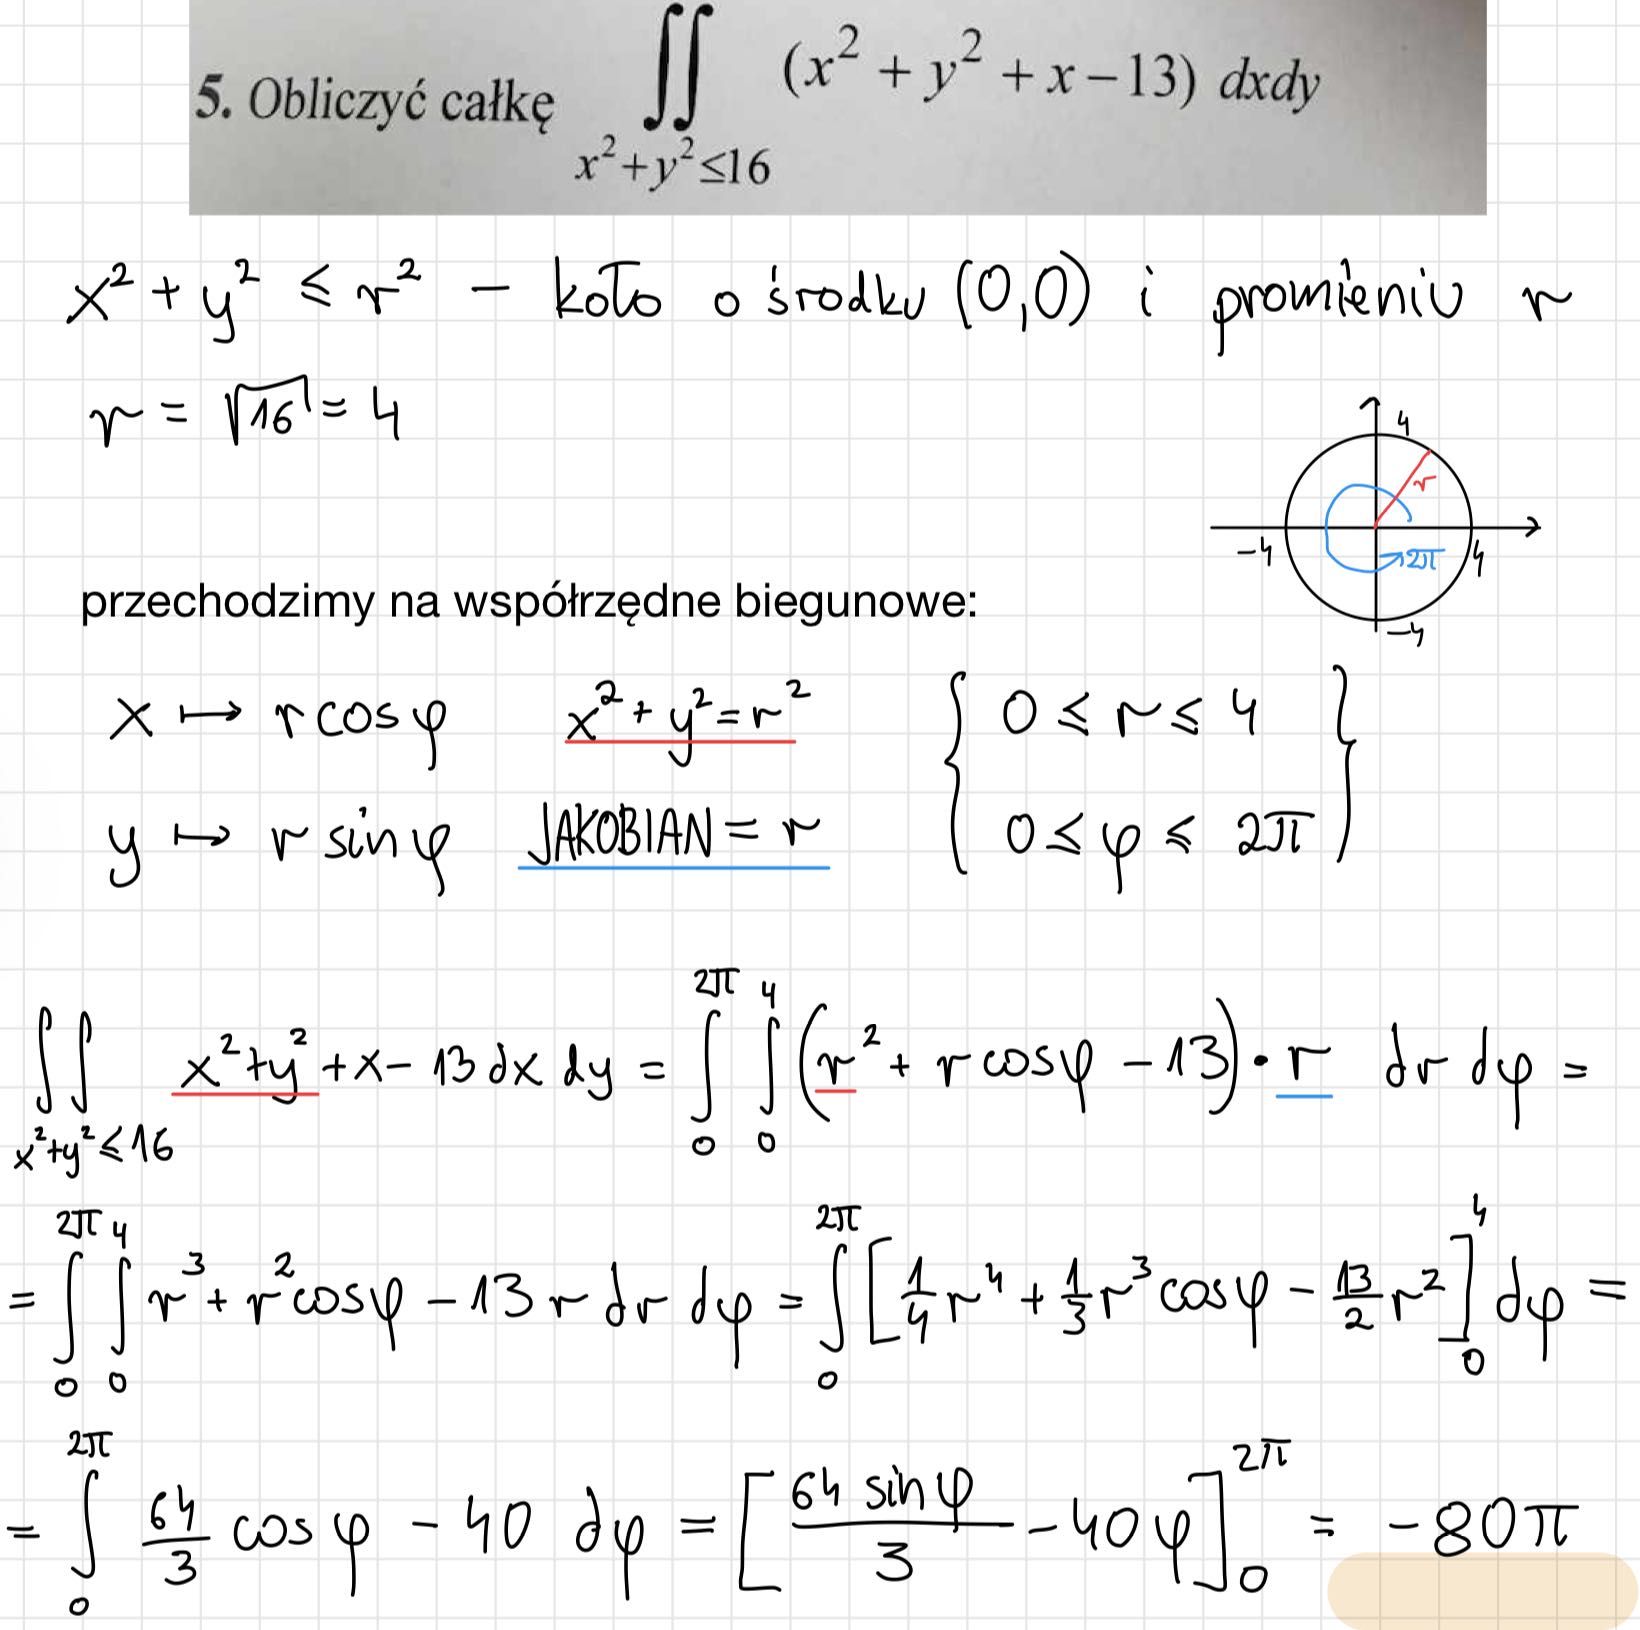 5. Obliczyć całkę ∬ (x² + y² + x – 13) dxdy
x²+y²≤16
x² + y² ≤ r² – koło o środku (0,0) i promieniu r
r = √16 = 4
4
r
-4
2π
4
-4
przechodzimy na współrzędne biegunowe:
x ↦ r cos φ x² + y² = r² { 0 ≤ r ≤ 4 }
y ↦ r sin φ JAKOBIAN = r { 0 ≤ φ ≤ 2π }
∬_{x²+y²≤16} x²+y²+x-13 dx dy = ∫_0^{2π} ∫_0^4 (r² + r cos φ – 13) · r dr dφ =
= ∫_0^{2π} ∫_0^4 r³ + r² cos φ – 13 r dr dφ = ∫_0^{2π} [1/4 r⁴ + 1/3 r³ cos φ – 13/2 r²]_0^4 dφ =
= ∫_0^{2π} 64/3 cos φ – 40 dφ = [64 sin φ / 3 – 40 φ]_0^{2π} = -80π